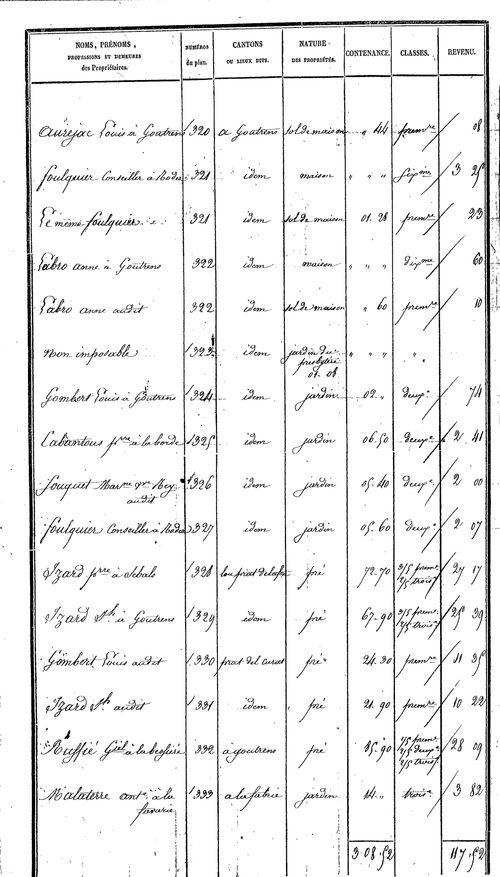 NOMS, PRÉNOMS, PROFESSIONS ET DEMEURES des Propriétaires. NUMÉROS du plan. CANTONS OU LIEUX DITS. NATURE DES PROPRIÉTÉS. CONTENANCE. CLASSES. REVENU.
Aurejac Louis à Goutrens 320 a Goutrens sol de maison " 44 premre 08
foulquier Conseiller à Rodez 321 idem maison " " " sixme 3 25
Le même foulquier 321 idem sol de maison 01.28 premre 23
Fabro anne à Goutrens 322 idem maison " " " dixme 60
Fabro anne audit 322 idem sol de maison " 60 premre 10
Non imposable 323 idem jardin du " " " "
presbitère
01.08
Gombert Louis à Goutrens 324 idem jardin 02 " deuxe 74
Cabantous prre à la borde 325 idem jardin 06.50 deuxe 2 41
fouquet Marne vve Rey 326 idem jardin 05.40 deuxe 2 00
audit
foulquier Conseiller à Rodez 327 idem jardin 05.60 deuxe 2 07
Izard prre à 328 pré 72.70 3/5 premre 27 17
2/5 troise
Izard Jh à Goutrens 329 idem pré 67.90 3/5 premre 25 39
2/5 troise
Gombert Louis audit 330 prat del curat pré 24.30 premre 11 35
Izard Jh audit 331 idem pré 21.90 premre 10 22
Ruffié Giel à la 332 a goutrens pré 1/5 premre 28 09
2/5 deuxe
2/5 troise
Malaterre ante à la 333 a la fabrie jardin 14 " troise 3 82
favarie
3.08.52 117.52